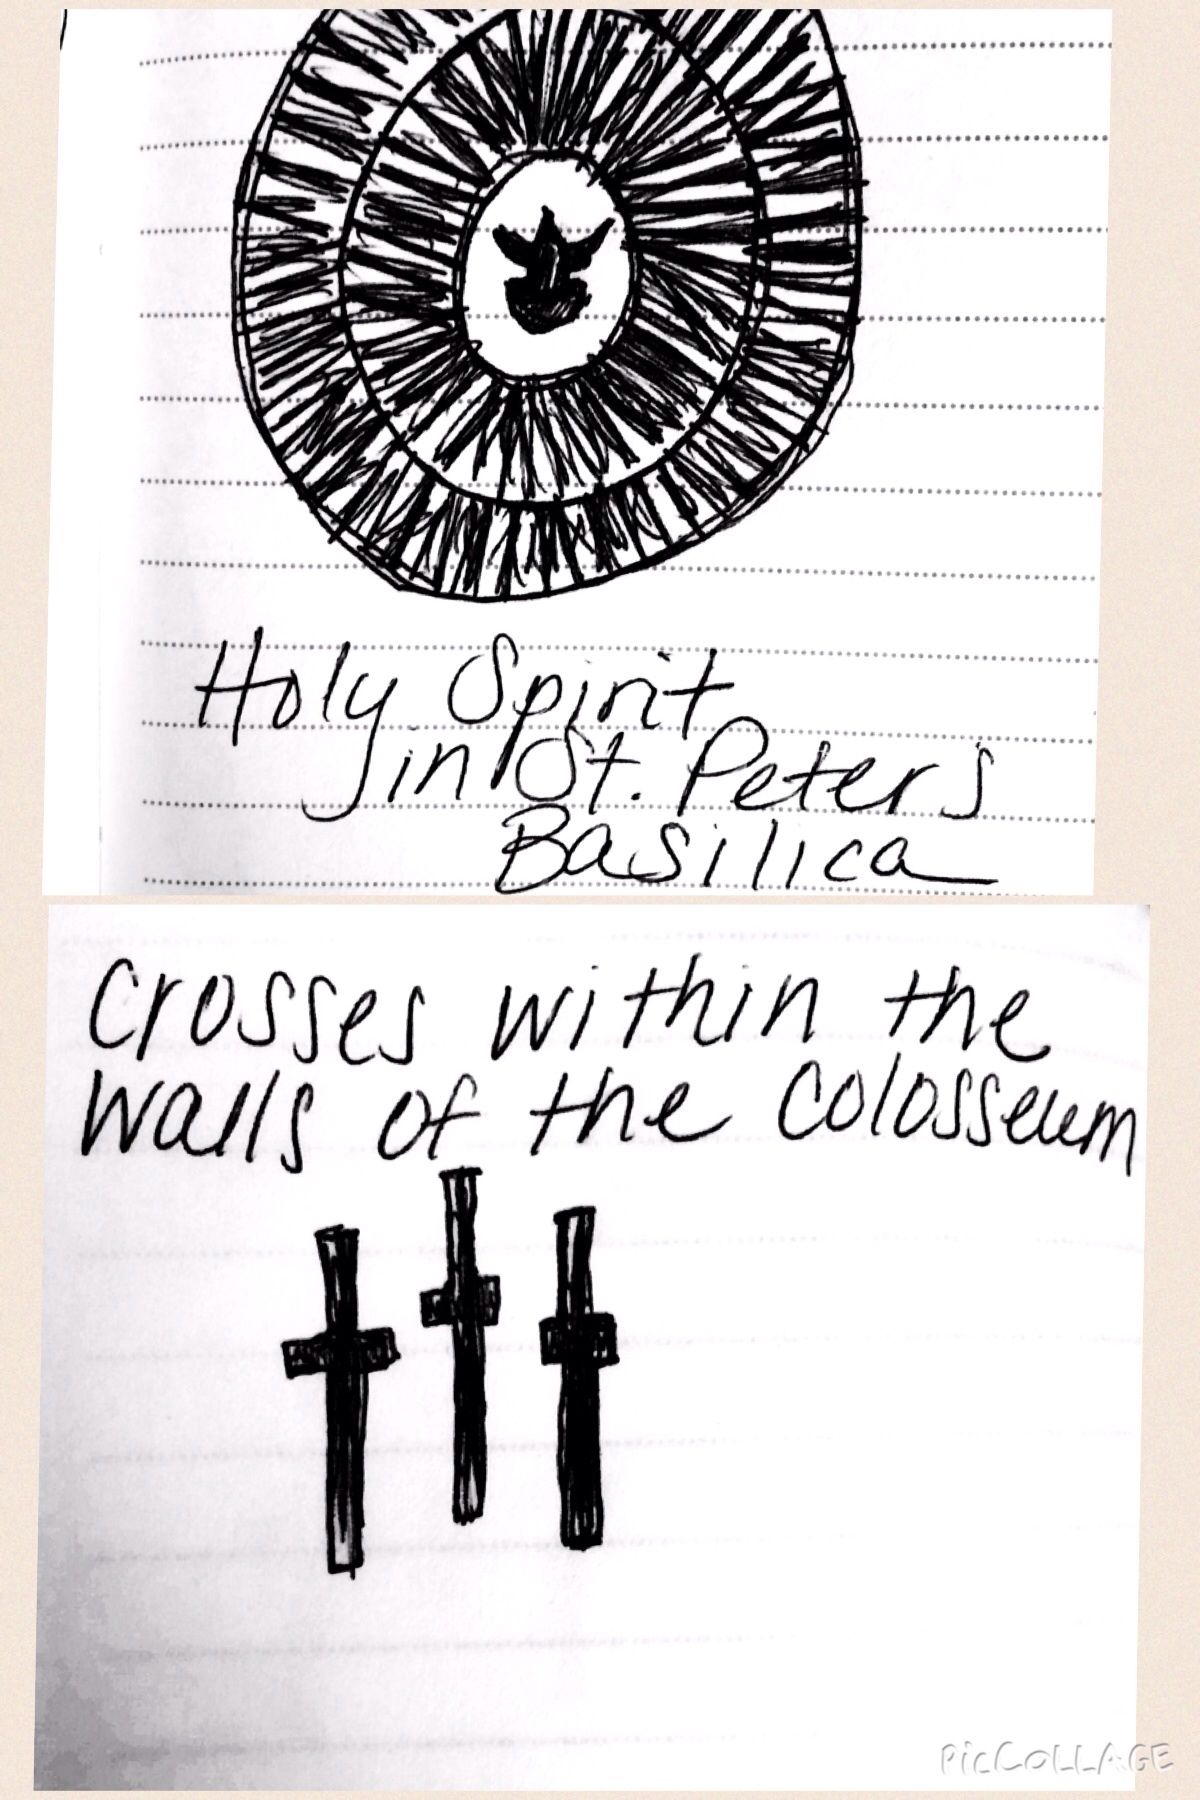 Holy Spirit
in St. Peters
Basilica
Crosses within the
walls of the Colosseum
PicCOLLAGE